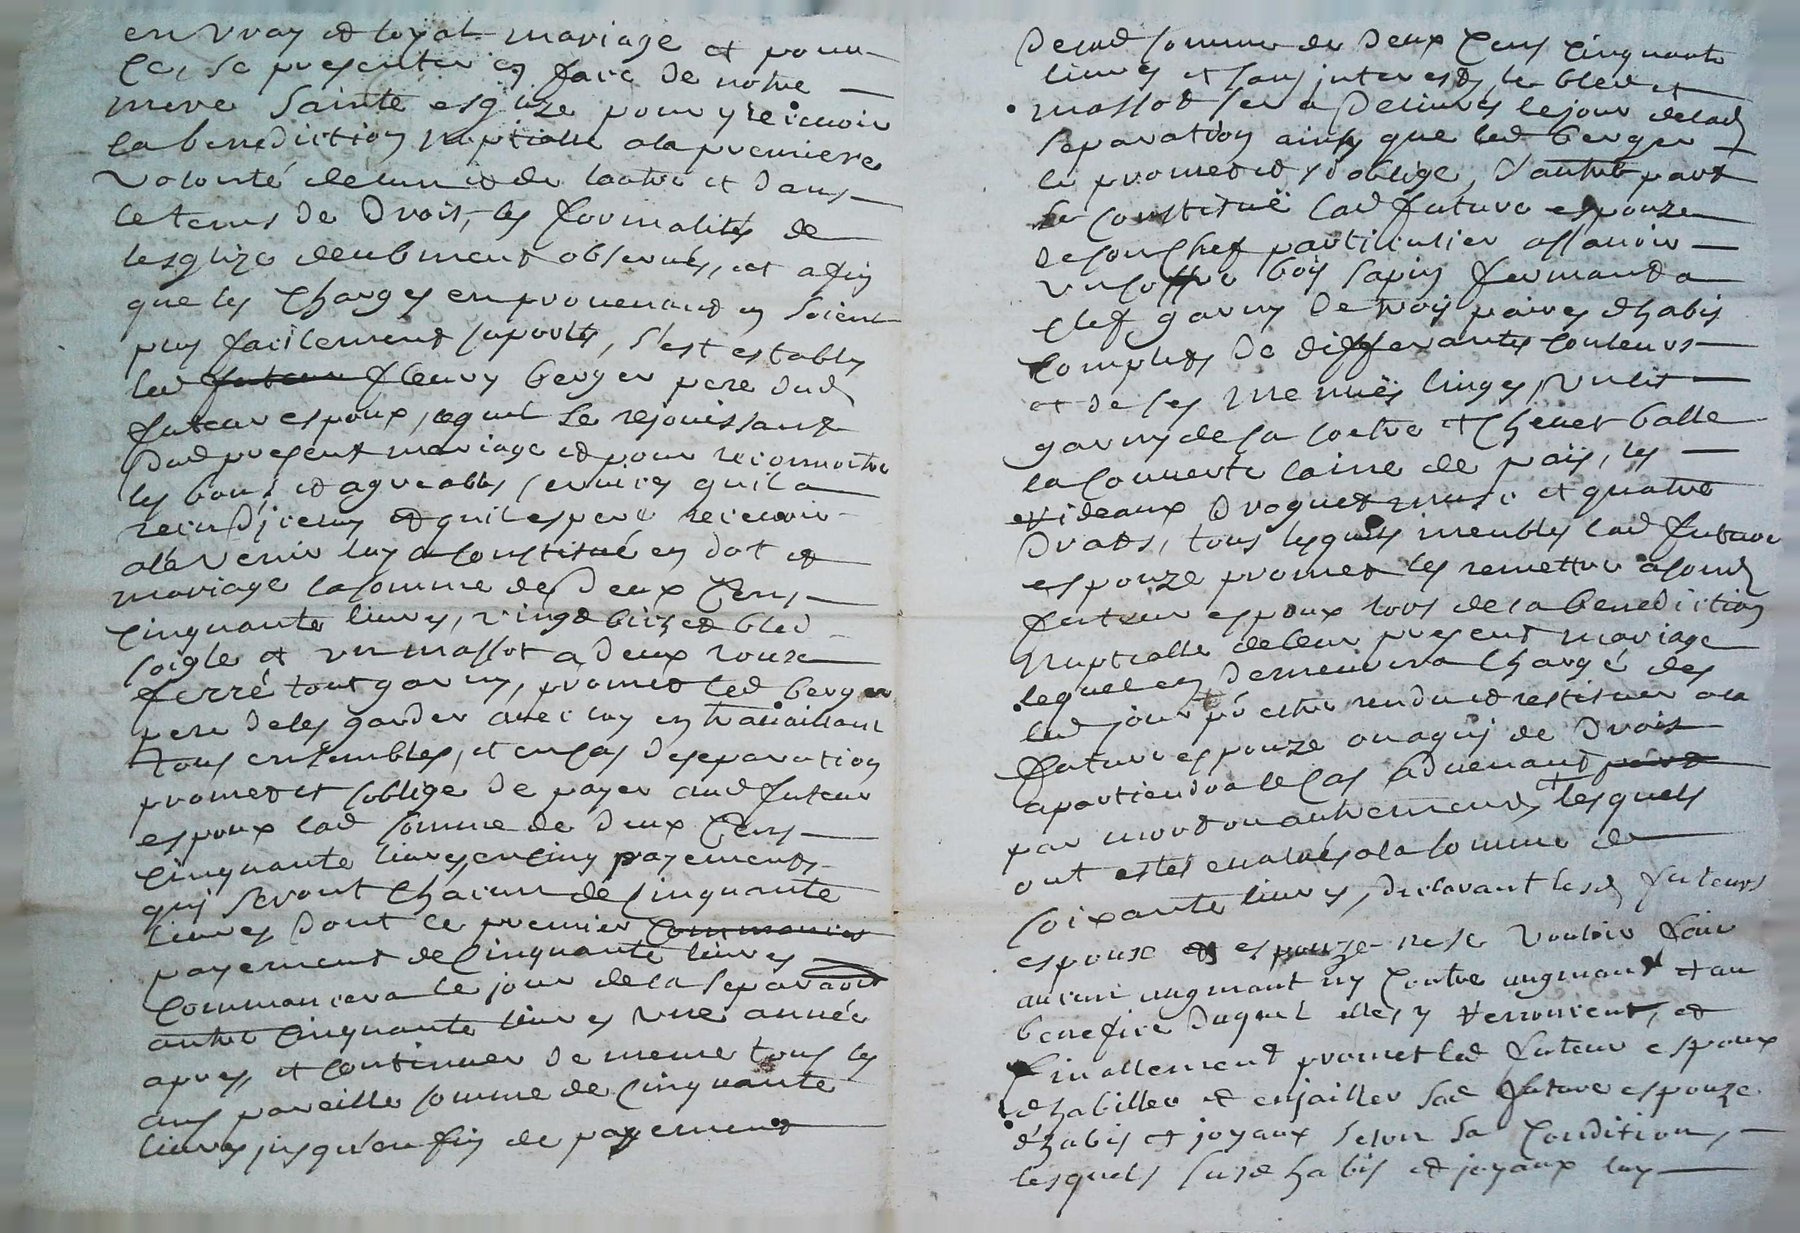 en vray et loyal mariage et pour
ce, se presenter en face de notre
mere Sainte esglize pour y recevoir
la benediction nuptialle a la premiere
volonté de lun et de lautre et dans
le tems de droit, les formalités de
lesglize deubment observés, et afin
que les charges en provenant en soient
plus facilement suportés, s'est estably
led futeur fleury berger pere dud
futeur espoux, lequel se rejouissant
dud present mariage et pour reconnoitre
les bons et agreables services quil a
receu diceluy et quil espere recevoir
a la venir luy a constitué en dot et
mariage la somme de deux cens
cinquante livres, vingt bichet bled
soigle et un massot a deux roues
ferré tout garny, promet led berger
pere de les garder avec luy en travaillant
tous ensembles, et en cas de separation
promet et soblige de payer aud futeur
espoux lad somme de deux cens
cinquante livres en cinq payements
qui seront chacun de cinquante
livres dont le premier commancer
payement de cinquante livres
commancera le jour de la separaõn
autre cinquante livres une année
apres, et continuer de meme tous les
ans pareille somme de cinquante
livres jusqu'en fin de payement
de lad somme de deux cens cinquante
livres et sans interests, le bled et
massot sera delivrés le jour de lad
separation ainsy que led berger
le promet et sy oblige, d'autre part
se constituë lad future espouze
de son chef particulier assavoir
un coffre bois sapin fermant a
clef garny de trois paires dhabis
complets de differantes couleurs
et de ses menuës linges, un lit
garny de sa coetre et chevet balle
la couverte laine de païs, les
rideaux droguet musc et quatre
draps, tous lesquels meubles lad future
espouze promet les remettre a sond
futeur espoux lors de la benediction
nuptialle de leur present mariage
lequel en demeurera chargé des
led jour pr estre rendu et restituer a la
future espouze ou a qui de droit
apartiendra le cas advenant
par mort ou autrement, lesquels
ont estés evalués a la somme de
soixante livres, declarant lesd futeurs
espoux et espouze ne se vouloir faire
aucun augmant ny contre augmant et au
benefice duquel elles y renoncent, et
finallement promet led futeur espoux
dhabiller et enjailler sad future espouze
d'habis et joyaux selon sa condition,
lesquels susd habis et joyaux luy